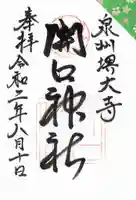 泉州堺大寺
開口神社
奉拝令和二年八月十日